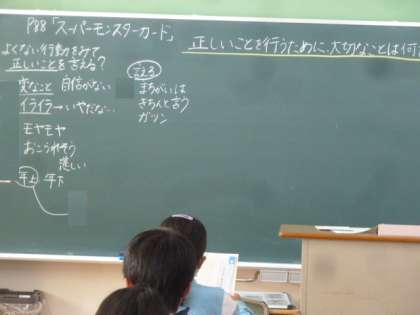 P88「スーパーモンスターカード」
よくない行動をみて
正しいことを言える?
変なこと 自信がない
イライラ→いやだな…
モヤモヤ
おこられそう
悲しい
年上 年下
言える
まちがいは
きちんと言う
ガツン
正しいことを行うために、大切なことは何